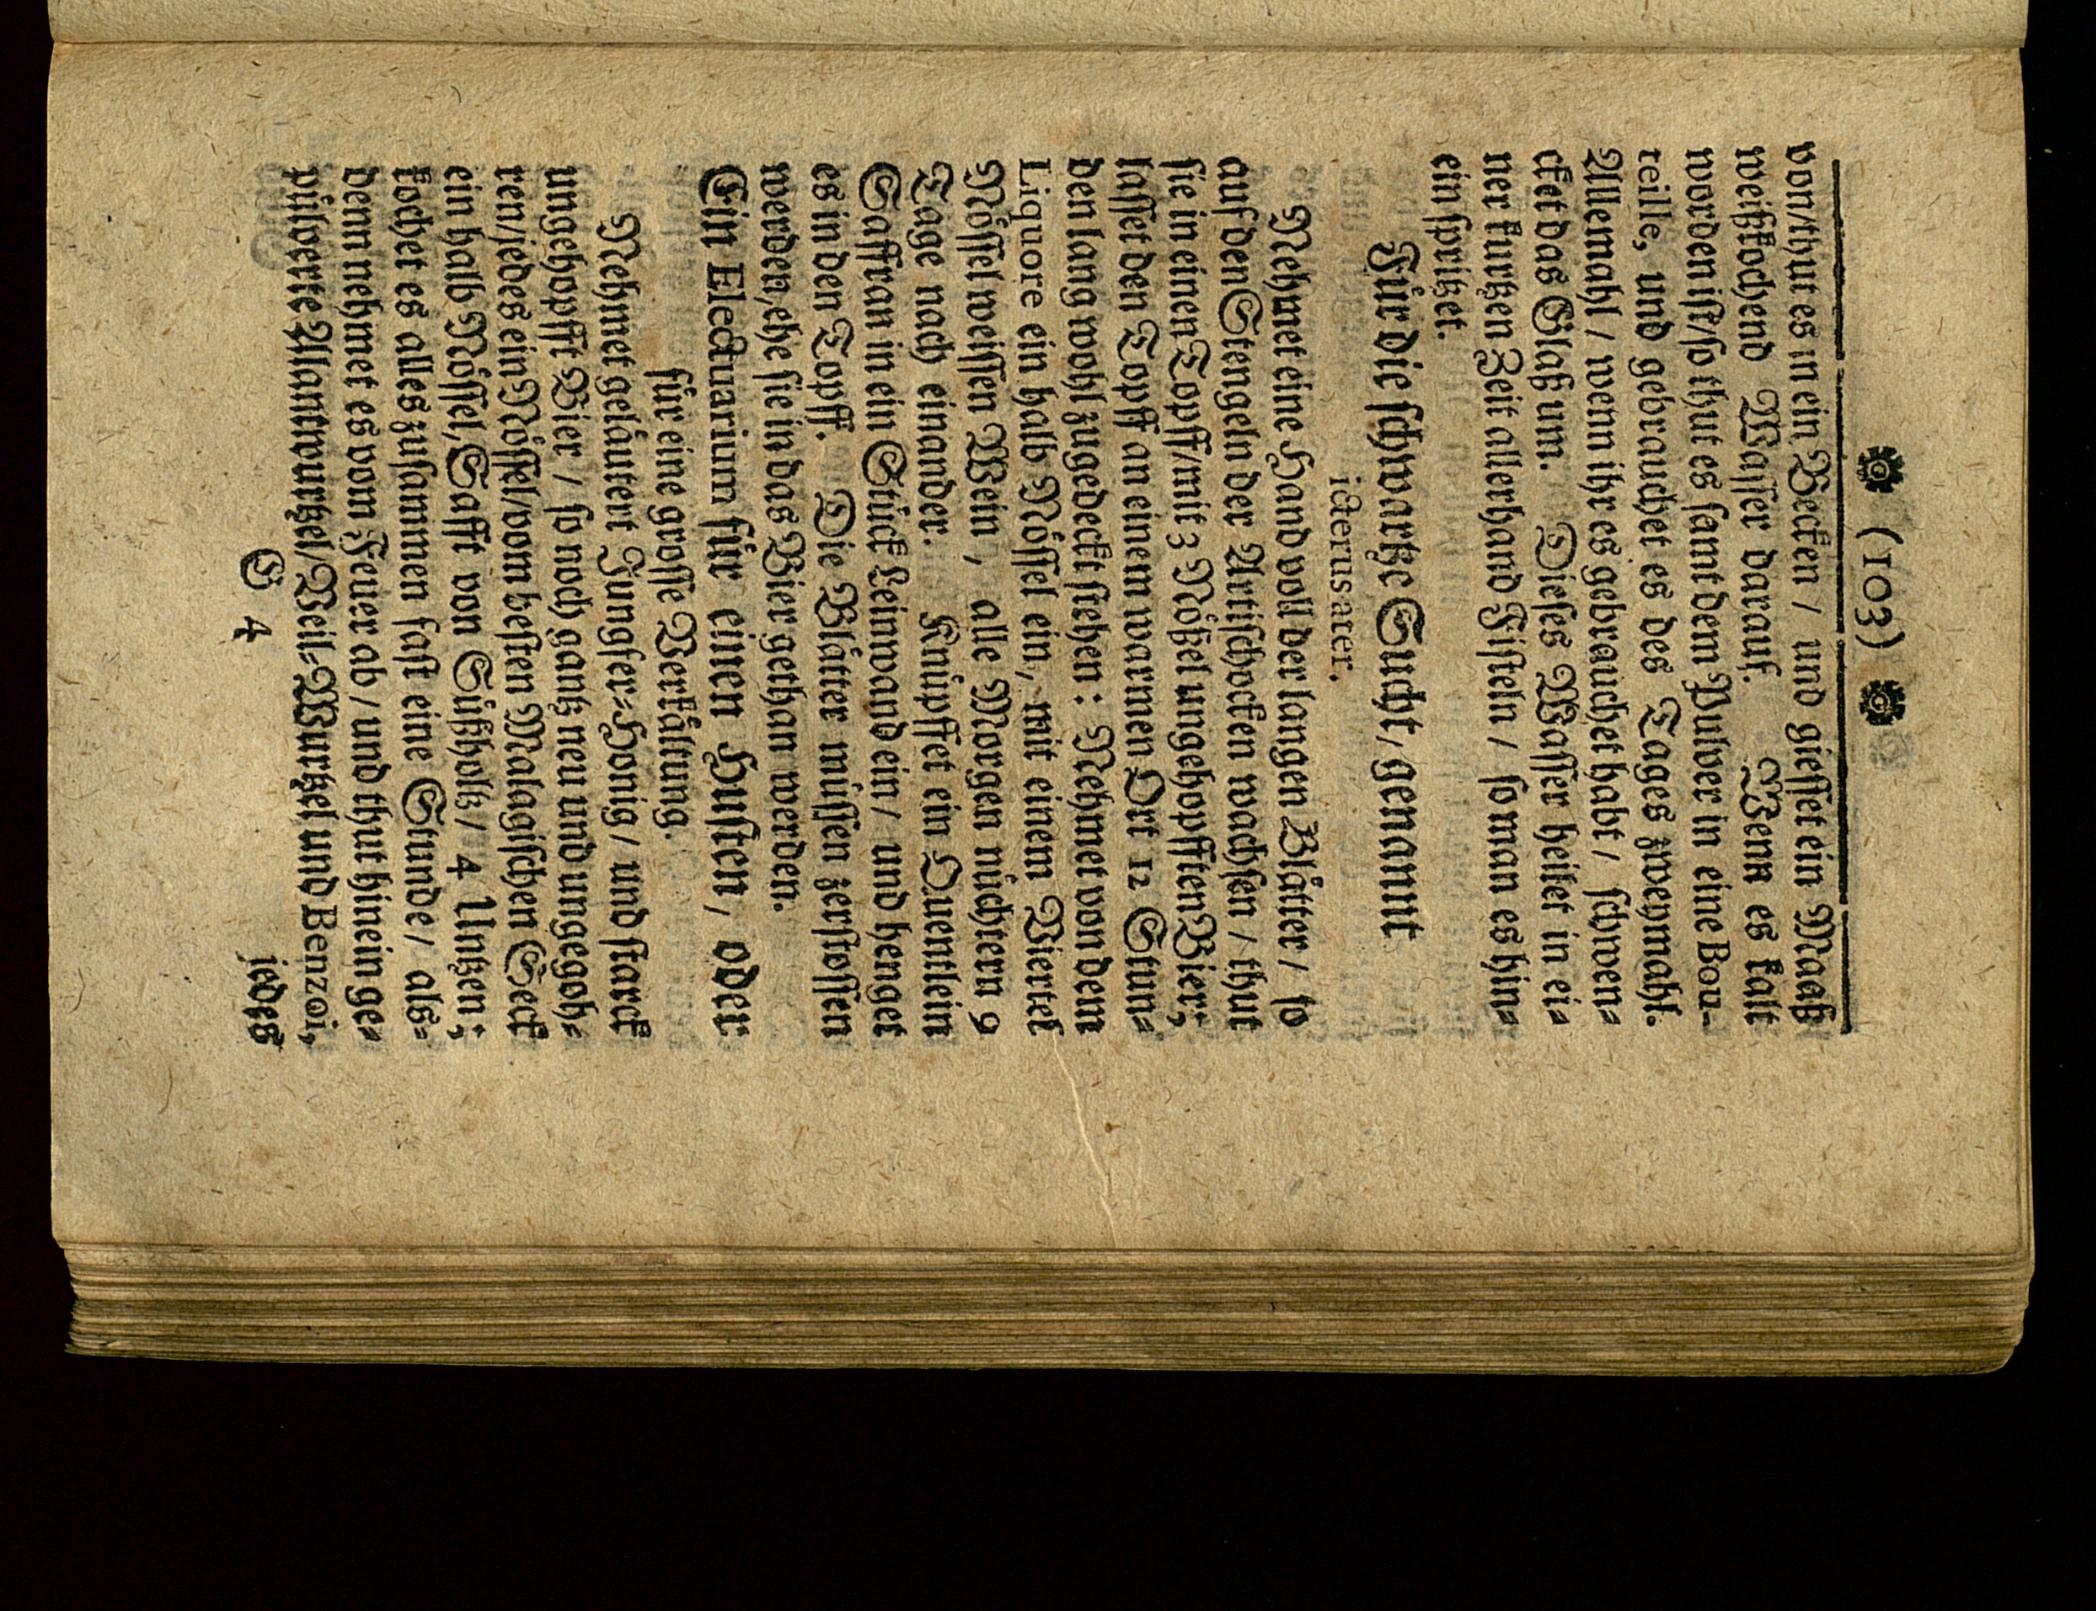 (103)
von/thut es in ein Becken / und giesset ein Maaß
weißkochend Wasser darauf. Wenn es kalt
worden ist/so thut es samt dem Pulver in eine Bou-
teille, und gebrauchet es des Tages zweymahl.
Allemahl / wenn ihr es gebrauchet habt / schwen-
cket das Glaß um. Dieses Wasser heilet in ei-
ner kurtzen Zeit allerhand Fisteln / so man es hin-
ein spritzet.
Für die schwartze Sucht, genannt
icterus ater.
Nehmet eine Hand voll der langen Blätter / so
auf den Stengeln der Artischocken wachsen / thut
sie in einen Topff/mit 3 Nößel ungehopfften Bier;
lasset den Topff an einem warmen Ort 12 Stun-
den lang wohl zugedeckt stehen: Nehmet von dem
Liquore ein halb Nössel ein, mit einem Viertel
Nössel weissen Wein, alle Morgen nüchtern 9
Tage nach einander. Knüpffet ein Quentlein
Saffran in ein Stück Leinwand ein / und henget
es in den Topff. Die Blätter müssen zerstossen
werden, ehe sie in das Bier gethan werden.
Ein Electuarium für einen Husten, oder
für eine grosse Verkältung.
Nehmet geläutert Jungfer-Honig / und starck
ungehopfft Bier / so noch gantz neu und umgegoh-
ren/jedes ein Nössel/vom besten Malagischen Seck
ein halb Nössel, Safft von Süßholtz / 4 Untzen;
kochet es alles zusammen fast eine Stunde / als-
denn nehmet es vom Feuer ab / und thut hinein ge-
pülverte Alantwurtzel/Veil-Wurtzel und Benzoi,
G 4 jedes